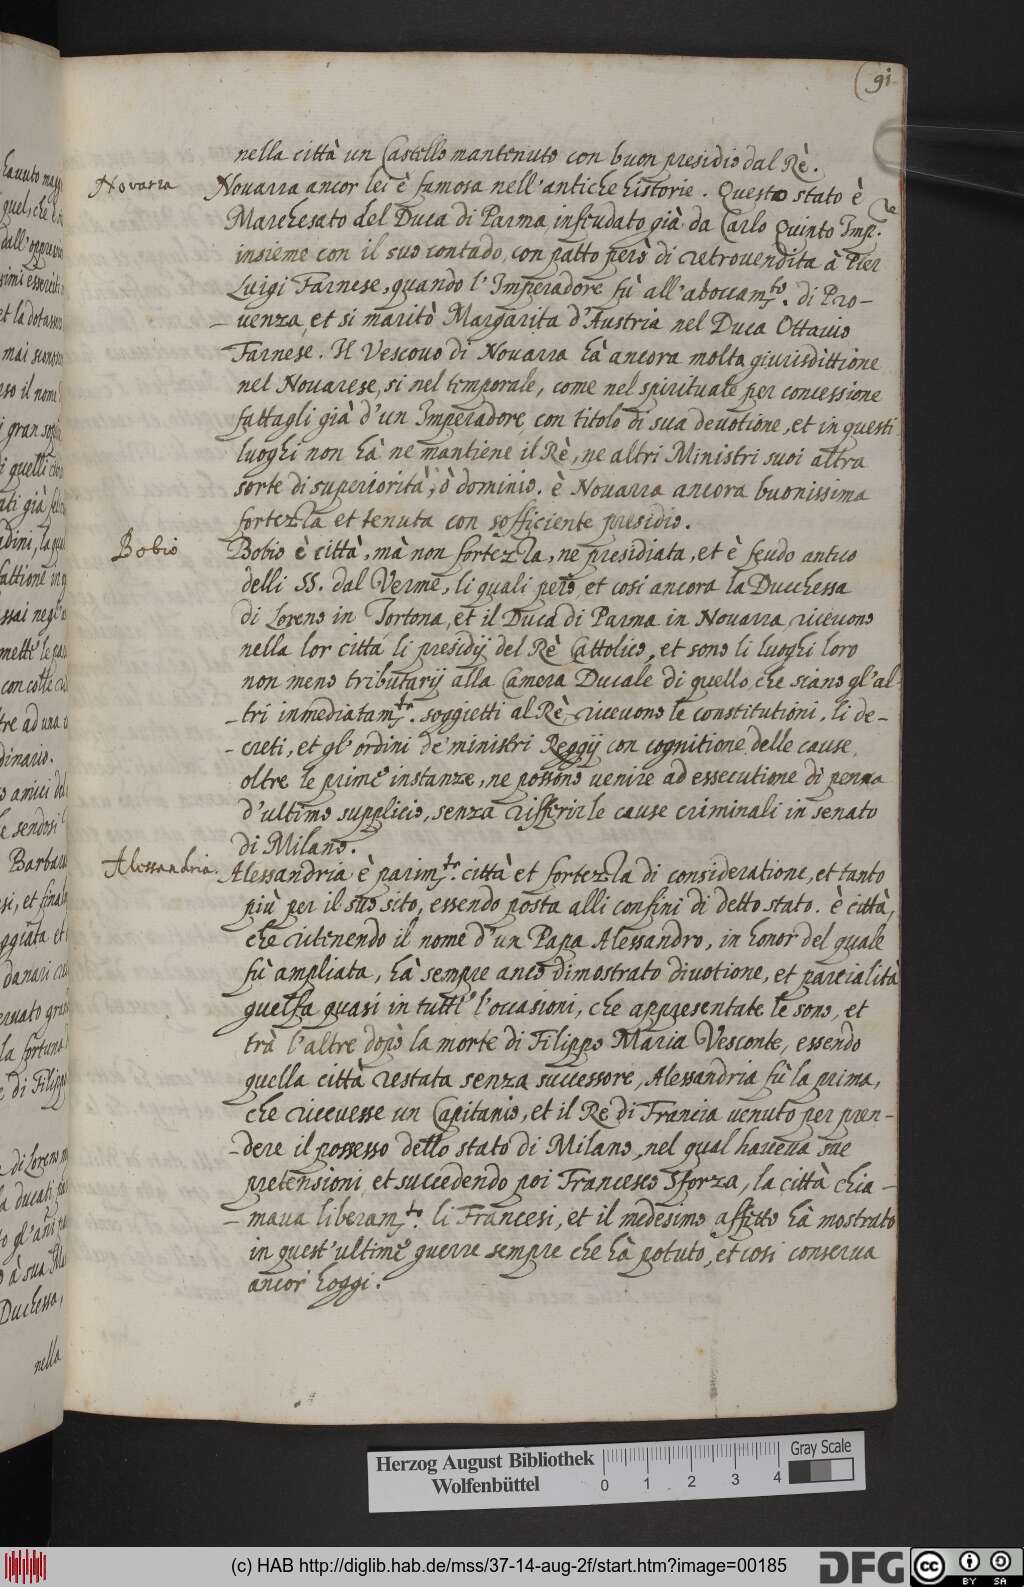 91
nella città un Castello mantenuto con buon presidio dal Rè.
Novarra
Novarra ancor lei è famosa nell'antiche historie. Questo stato è
Marchesato del Duca di Parma infeudato già da Carlo Quinto Imp.re
insieme con il suo contado, con patto però di retrovendita à Pier
Luigi Farnese, quando l'Imperadore fù all'aboccam.to di Pro-
-venza, et si maritò Margarita d'Austria nel Duca Ottavio
Farnese. Il Vescovo di Novarra hà ancora molta giurisdittione
nel Novarese, si nel temporale, come nel spirituale per concessione
fattagli già d'un Imperadore, con titolo di sua devotione, et in questi
luoghi non hà ne mantiene il Rè, ne altri Ministri suoi altra
sorte di superiorità, ò dominio. è Novarra ancora buonissima
fortezza et tenuta con sofficiente presidio.
Bobio
Bobio è città, mà non fortezza, ne presidiata, et è feudo antico
delli SS. dal Verme, li quali però, et così ancora la Ducchessa
di Loreno in Tortona, et il Duca di Parma in Novarra ricevono
nella lor città li presidij del Rè Cattolico, et sono li luoghi loro
non meno tributarij alla Camera Ducale di quello, che siano gl'al-
-tri inmediatam.te soggietti al Rè, ricevono le constitutioni, li de-
-creti, et gl'ordini de' ministri Reggij con cognitione delle cause
oltre le prime instanze, ne possono venire ad essecutione di penna
d'ultimo supplicio, senza rifferir le cause criminali in senato
di Milano.
Alessandria.
Alessandria è parim.te città et fortezza di consideratione, et tanto
più per il suo sito, essendo posta alli confini di detto stato. è città,
che ritenendo il nome d'un Papa Alessandro, in honor del quale
fù ampliata, hà sempre anco dimostrato divotione, et parcialità
guelfa quasi in tutte l'occasioni, che appresentate le sono, et
trà l'altre dopò la morte di Filippo Maria Vesconte, essendo
quella città restata senza successore, Alessandria fù la prima,
che ricevesse un Capitanio, et il Re di Francia venuto per pren-
-dere il possesso dello stato di Milano, nel qual haveva sue
pretensioni, et succedendo poi Francesco Sforza, la città chia-
-mava liberam.te li Francesi, et il medesimo affetto hà mostrato
in quest'ultime guerre sempre che hà potuto, et così conserva
ancor hoggi.
nella
Herzog August Bibliothek
Wolfenbüttel
0 1 2 3 4
Gray Scale
(c) HAB http://diglib.hab.de/mss/37-14-aug-2f/start.htm?image=00185
DFG
cc BY SA